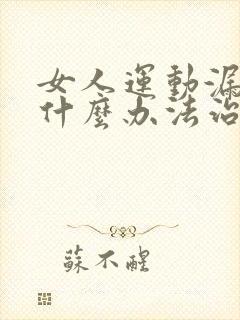 女人運動漏
什麼办法治
蘇不醒